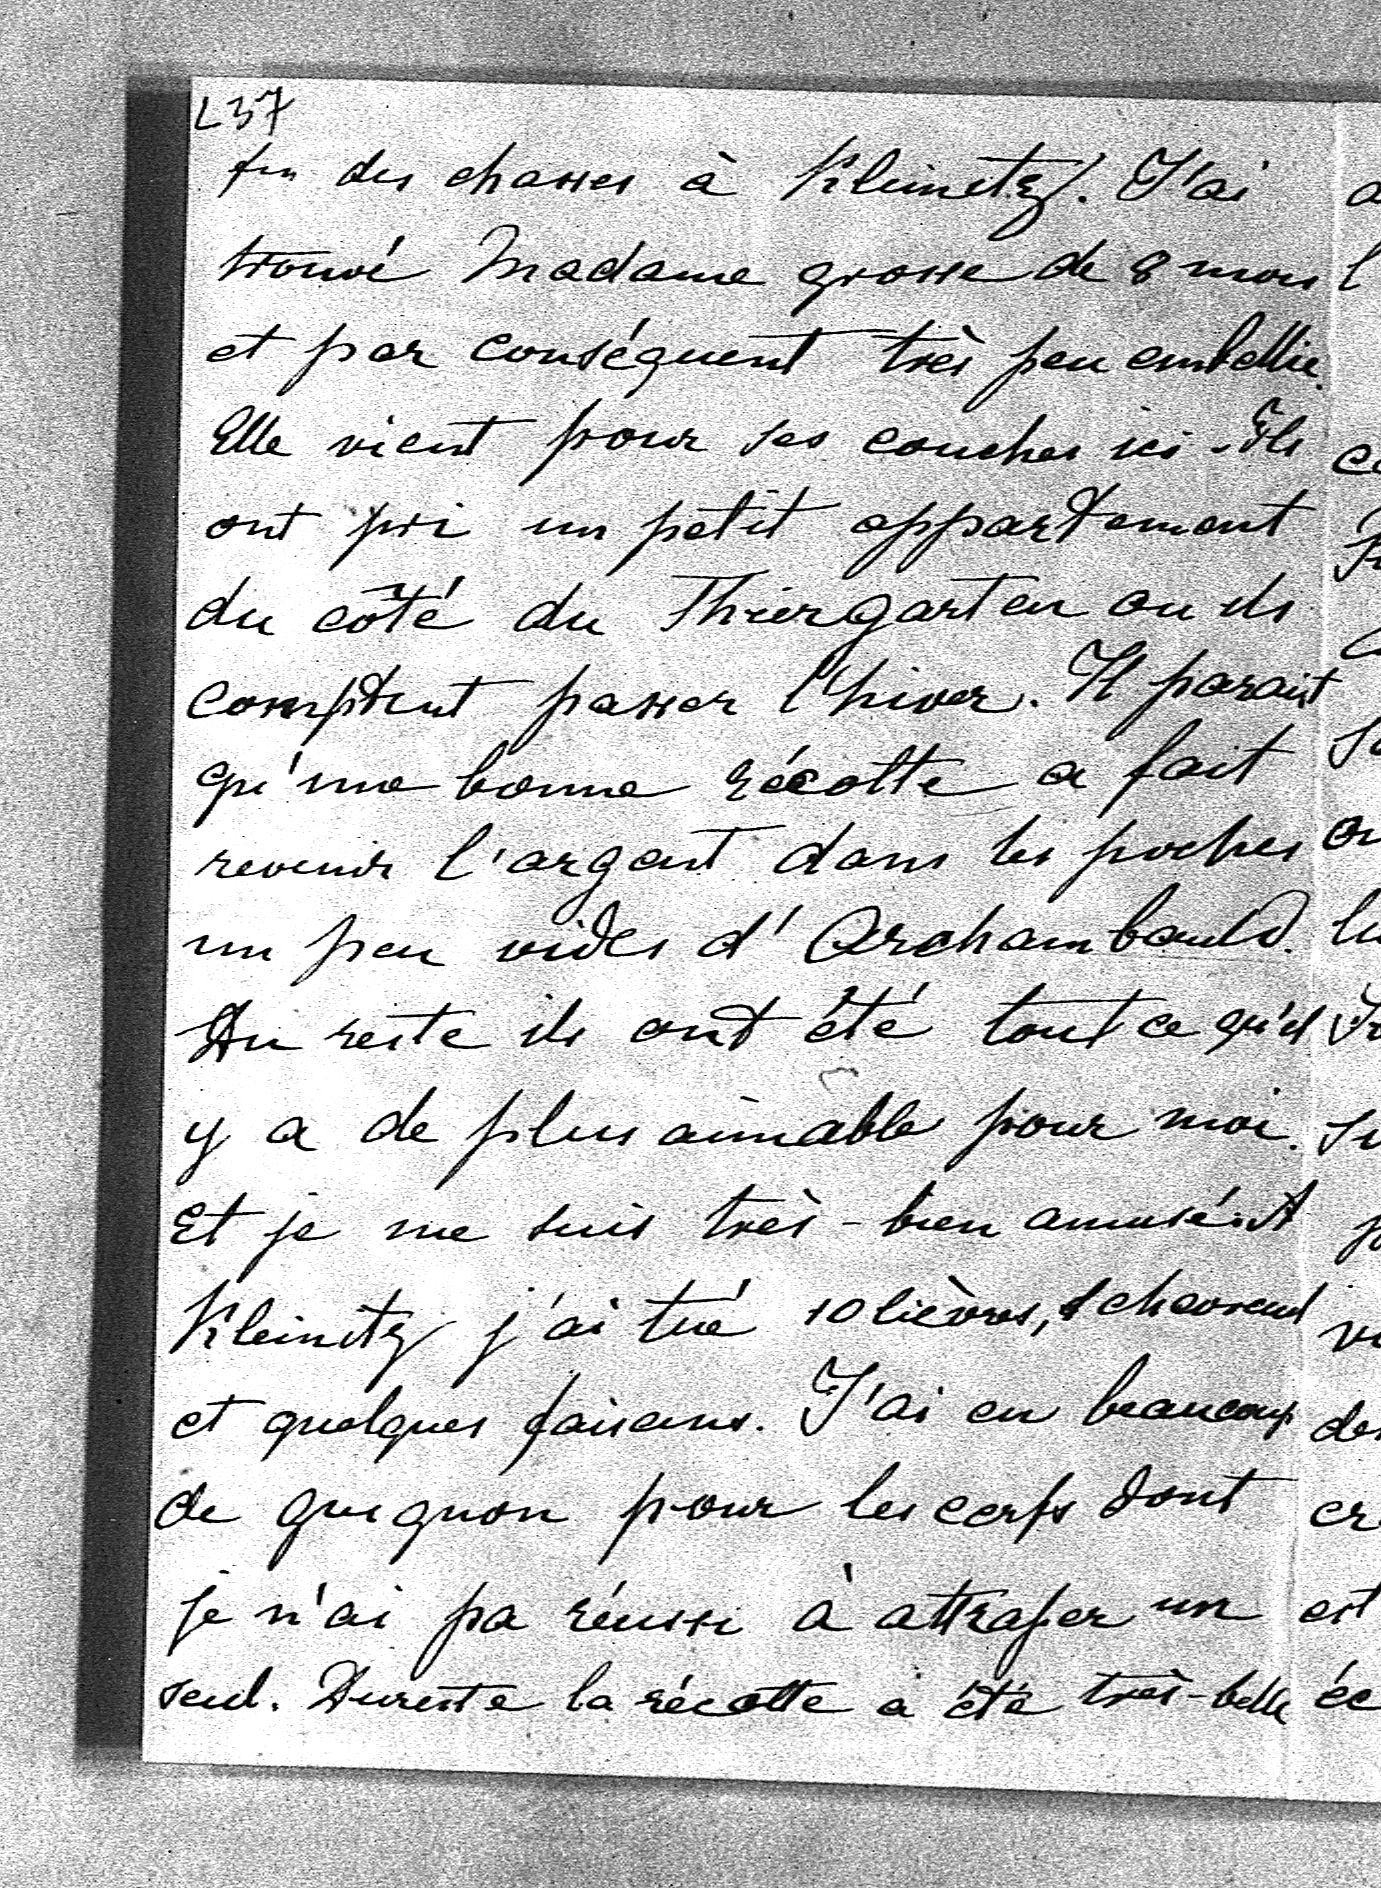 L 37
fin des chasses à Kleinitz. J'ai
trouvé Madame grosse de 8 mois
et par conséquent très peu embellie.
Elle vient pour ses couches ici. Ils
ont pri un petit appartement
du côté du Thiergarten ou ils
comptent passer l'hiver. Il parait
qu'une bonne récolte a fait
revenir l'argent dans les poches
un peu vides d'Archambauld.
Du reste ils ont été tout ce qu'il
y a de plus aimable pour moi.
Et je me suis très-bien amusé. A
Kleinitz j'ai tué 10 lièvres, chevreuil
et quelques faisans. J'ai eu beaucoup
de guignon pour les cerfs dont
je n'ai pa réussi à attraper un
seul. Dureste la récolte à été très-belle